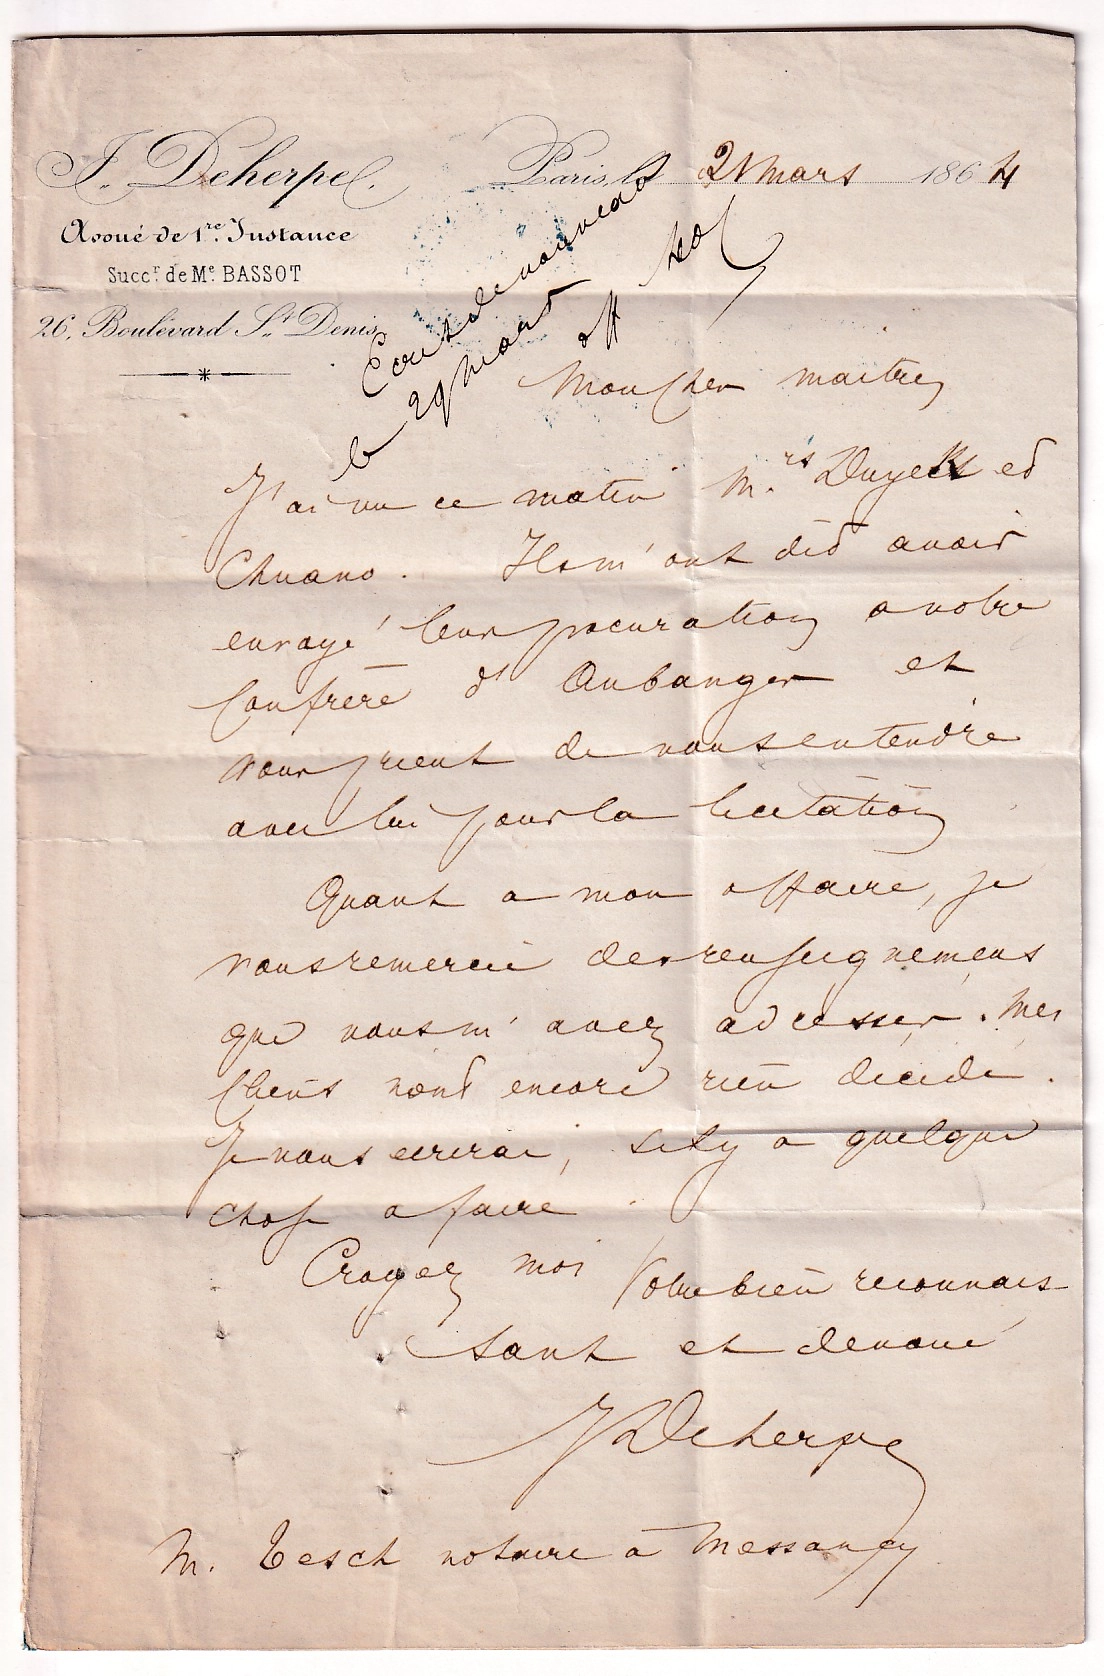 J. Deherpe.
Avoué de 1re Instance
Succr de Me BASSOT
26, Boulevard St Denis
Paris, le 21 mars 1864
Ecrit de nouveau
le 29 mars
Mon cher maitre,
J'ai vu ce matin M.rs Duyckts et
Ils m'ont dit avoir
envoyé leur procuration a votre
confrère d'Aubange et
vous prient de vous entendre
avec lui pour la licitation
Quant a mon affaire, je
vous remercie des renseignemens
que vous m'avez adresser. Mes
clients n'ont encore rien décidé.
Je vous ecrirai, s'il y a quelque
chose a faire.
Croyez moi Votre bien reconnais
sant et devoué
J Deherpe
M. Tesch notaire à Messancy